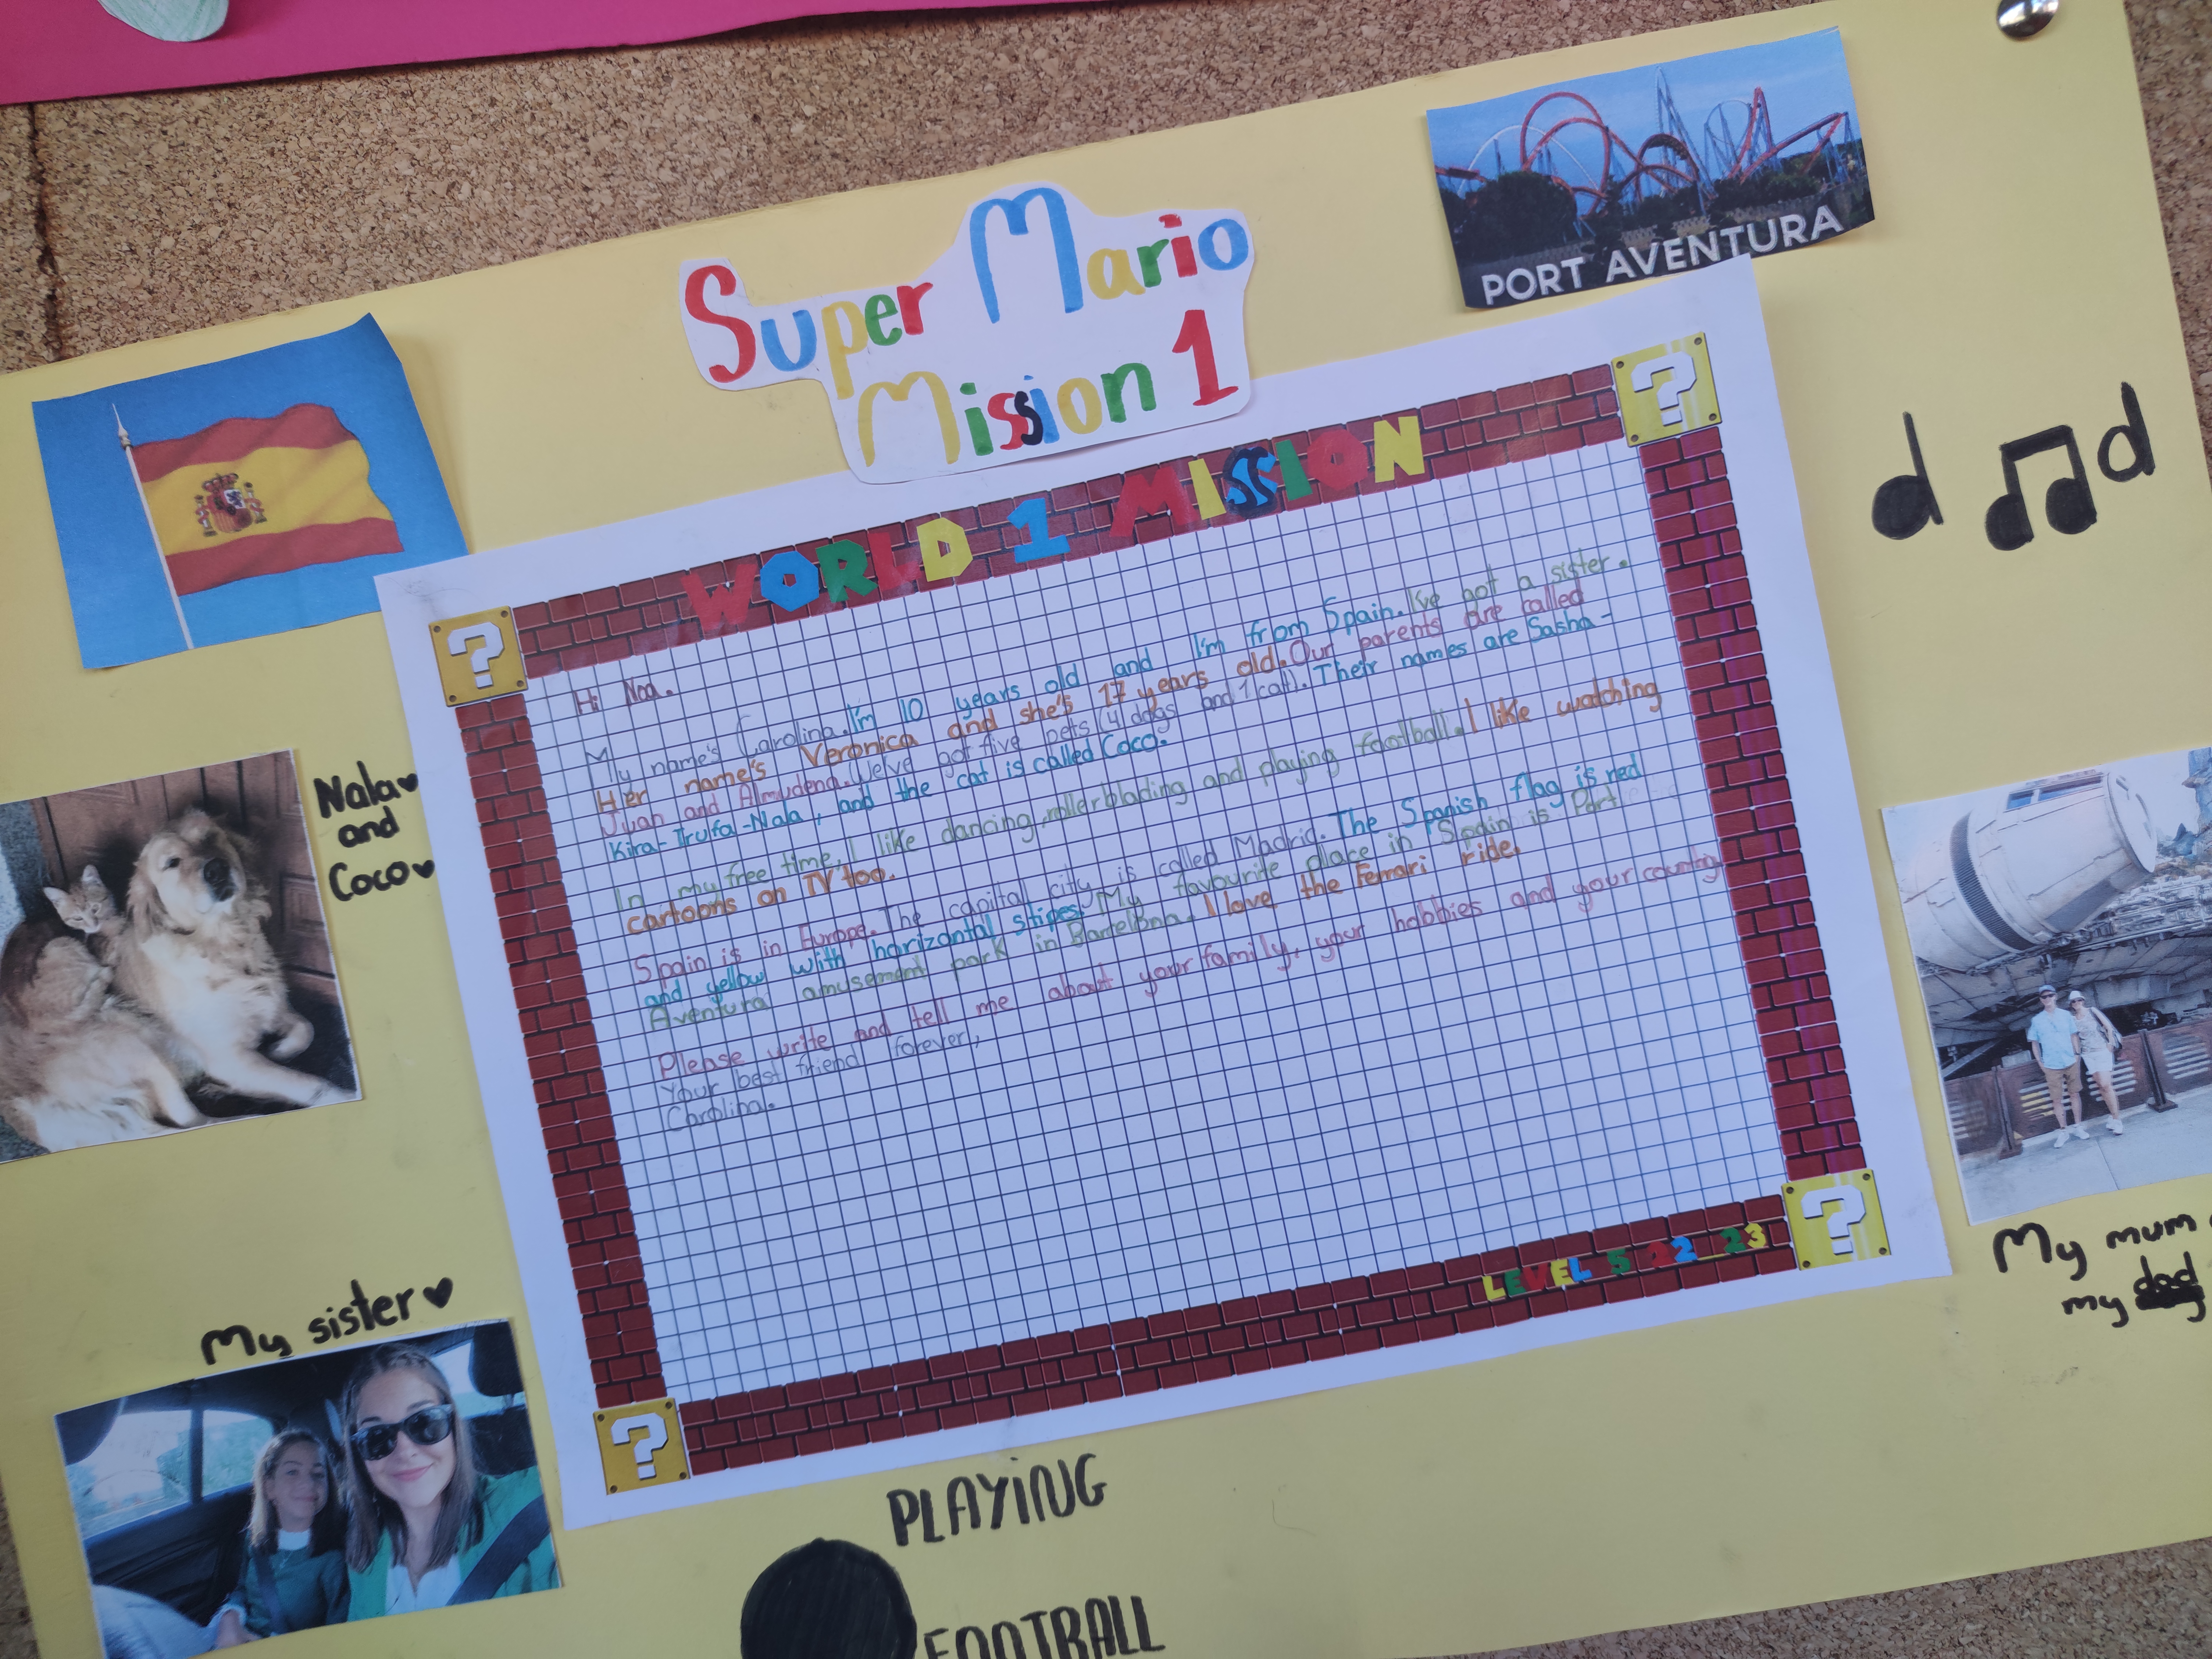 Super Mario
Mission 1
PORT AVENTURA
WORLD 1 MISSION
Hi Noa.
My name's Carolina. I'm 10 years old and I'm from Spain. I've got a sister.
Her name's Veronica and she's 17 years old. Our parents are called
Juan and Almudena. We've got five pets (4 dogs and 1 cat). Their names are Sasha-
Kira-Trufa-Nala, and the cat is called Coco.
In my free time, I like dancing, rollerblading and playing football. I like watching
cartoons on TV too.
Spain is in Europe. The capital city is called Madrid. The Spanish flag is red
and yellow with horizontal stipes. My favourite place in Spain is Port
Aventura amusement park in Barcelona. I love the Ferrari ride.
Please write and tell me about your family, your hobbies and your country.
Your best friend forever,
Carolina.
LEVEL 5 22_23
Nala
and
Coco
My sister
My mum
my dad
PLAYiNG
FOOTBALL